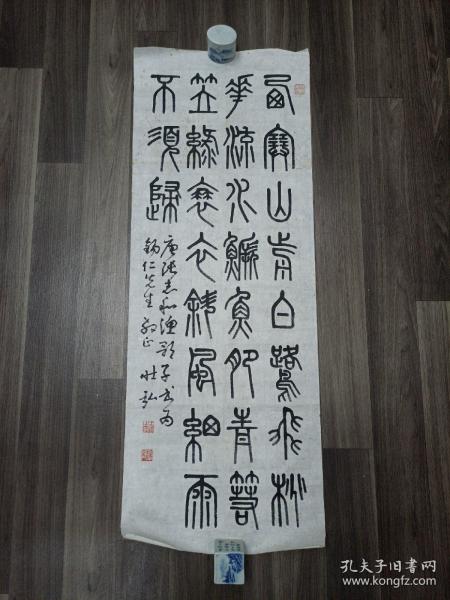 西塞山前白鷺飛桃
華流水鱖魚肥青箬
笠綠蓑衣斜風細雨
不須歸
唐張志和漁歌子書為
錫仁先生教正 壯弘
孔夫子旧书网
www.kongfz.com